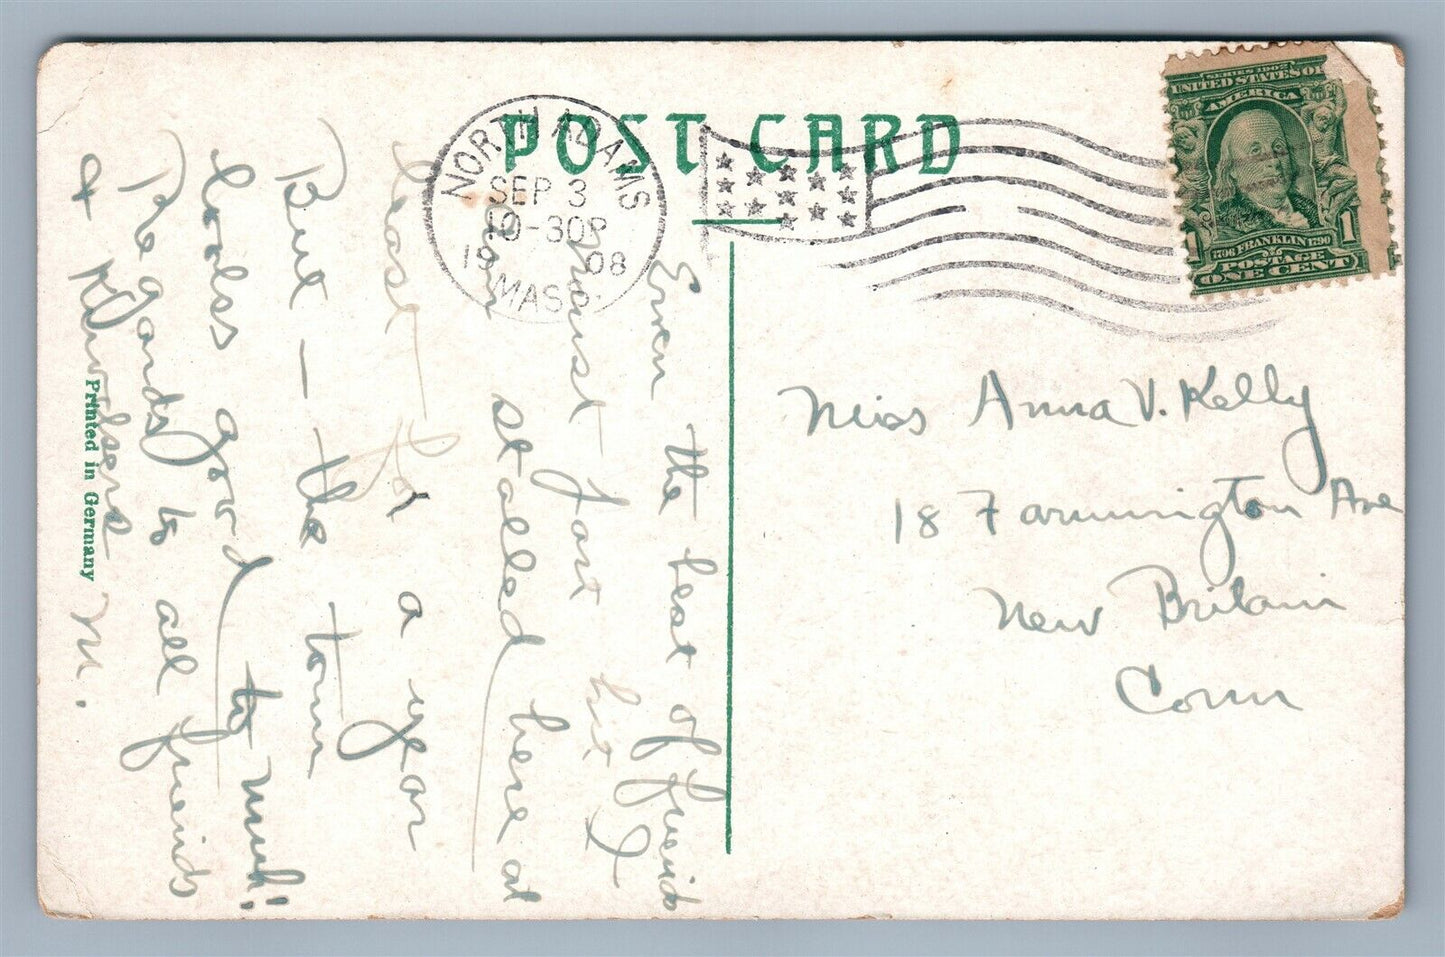 POST CARD
NORTH ADAMS
SEP 3
10-30P
1908
MASS.
SERIES 1902
UNITED STATES OF
AMERICA
1706 FRANKLIN 1790
POSTAGE
1 1
ONE CENT
Even the best of friends
must part but I
am stalled here at
least for a year
But — the town
looks good to muh!
Regards to all friends
&
M.
Printed in Germany
Miss Anna V. Kelly
18 Farmington Ave
New Britain
Conn